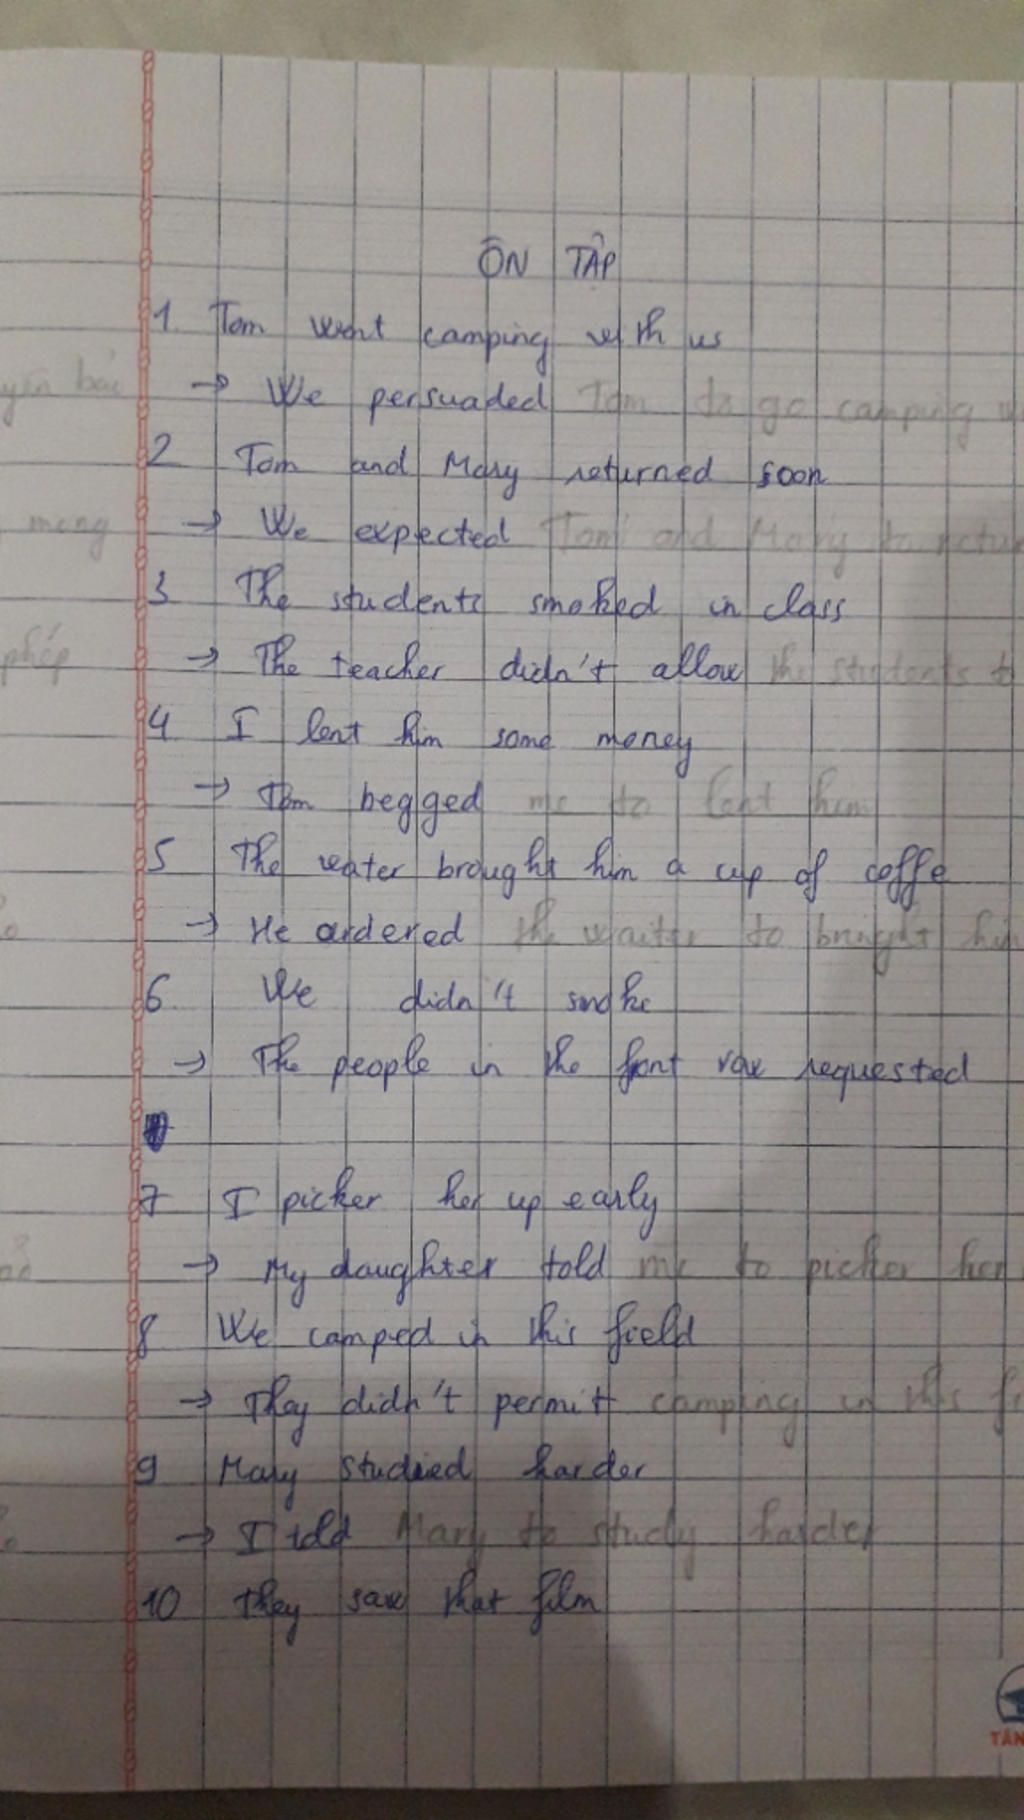 ÔN TẬP
1 Tom went camping with us
→ We persuaded Tom to go camping
2 Tom and Mary returned soon
mong → We expected Tom and Mary to retur
3 The students smoked in class
phép → The teacher didn't allow the students t
4 I lent him some money
→ Tom begged me to lent him
5 The water brought him a cup of coffe
→ He ordered the waiter to brought him
6 We didn't smoke
→ The people in the front row requested
7 I picker her up early
→ My daughter told me to picker her
8 We camped in this field
→ They didn't permit camping in this fi
9 Mary studied harder
→ I told Mary to study harder
10 They saw that film
TÂN